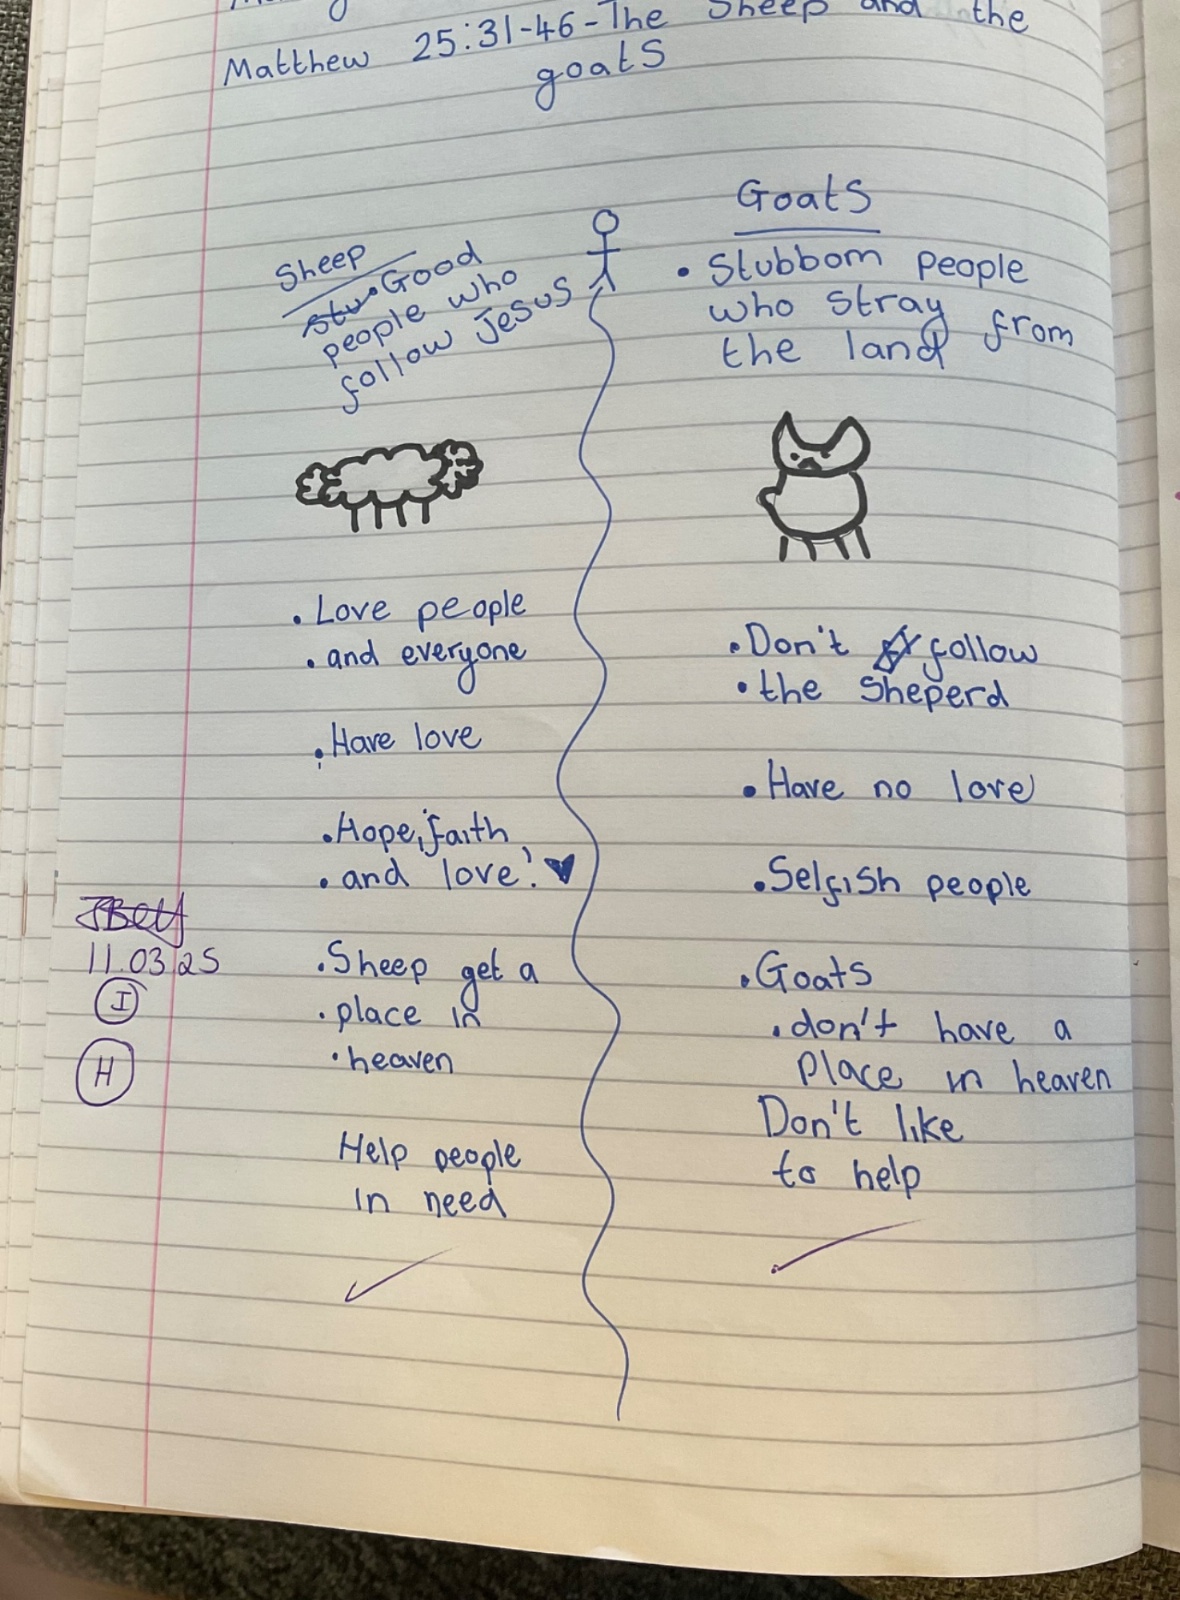 Matthew 25:31-46-The Sheep and the
goats
Sheep
stu • Good
people who
follow Jesus
• Love people
• and everyone
• Have love
• Hope, faith
• and love! ♥
• Sheep get a
• place in
• heaven
Help people
in need
Goats
• Stubborn people
who stray from
the land
• Don't follow
• the Sheperd
• Have no love
• Selfish people
• Goats
• don't have a
Place in heaven
Don't like
to help
11.03.25
I
H